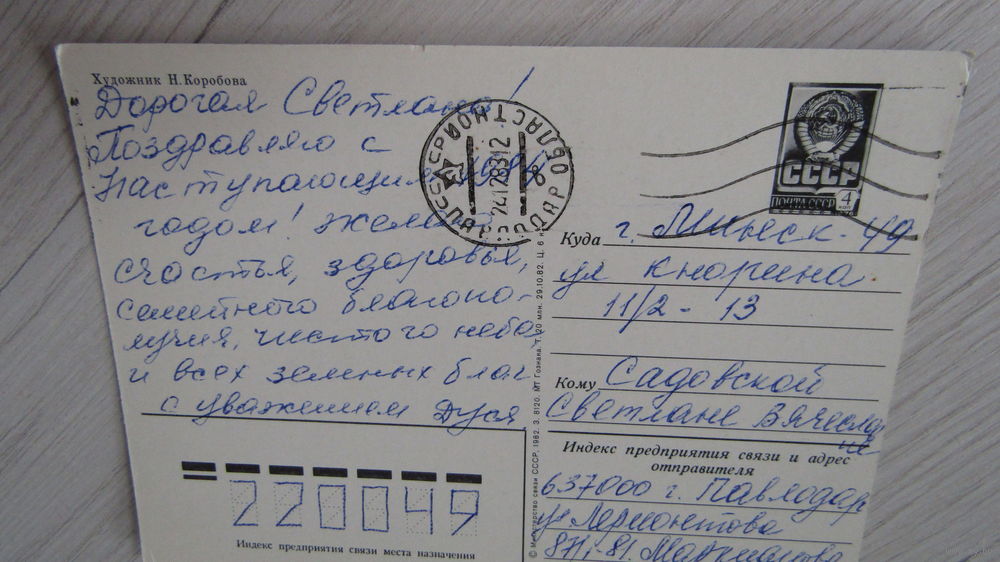 Художник Н.Коробова
Дорогая Светлана!
Поздравляю с
наступающим 1984
годом! Желаю
счастья, здоровья,
семейного благопо-
лучия, чистого неба
и всех земных благ
с уважением Дуся
ПАВЛОДАР ОБЛАСТНОЙ
СССР
24128312
СССР
ПОЧТА СССР 4 КОП
1976
Куда г. Минск-49
ул Кнорина
11/2 - 13
Кому Садовской
Светлане Вячеслав
не
Индекс предприятия связи и адрес
отправителя
637000 г. Павлодар
ул Лермонтова
220049
Индекс предприятия связи места назначения
© Министерство связи СССР. 1982. З. 8120. МТ Гознака. Т. 20 млн. 29.10.82. Ц. 6 к